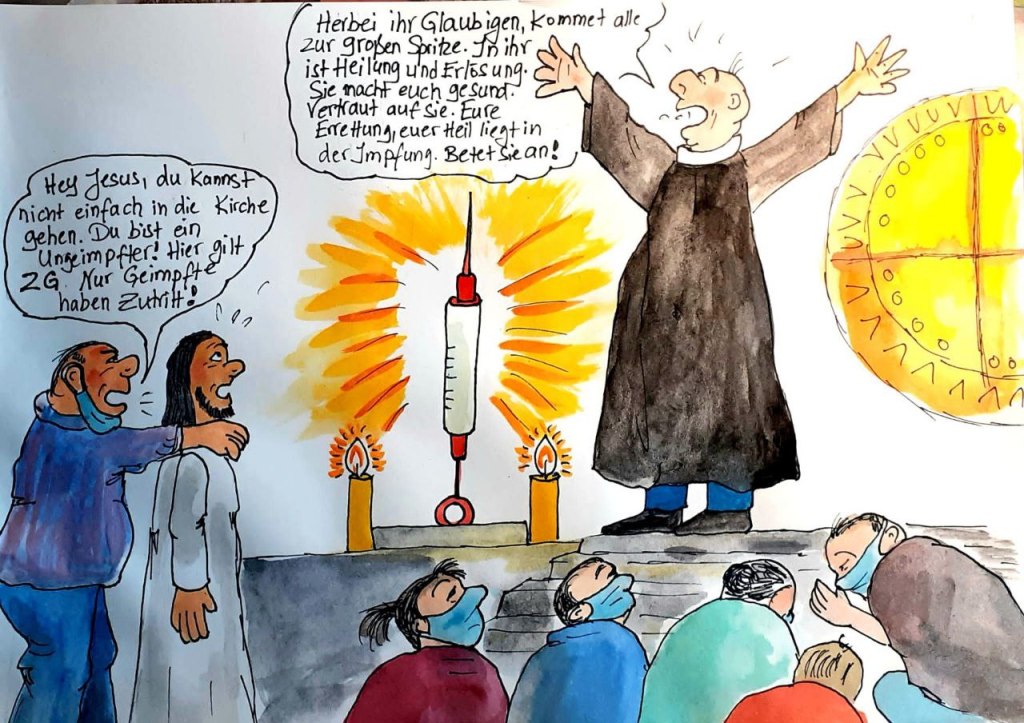 Herbei ihr Glaubigen, kommet alle
zur großen Spritze. In ihr
ist Heilung und Erlösung.
Sie macht euch gesund.
Vertraut auf sie. Eure
Errettung, euer Heil liegt in
der Impfung. Betet sie an!
Hey Jesus, du kannst
nicht einfach in die Kirche
gehen. Du bist ein
Ungeimpfter! Hier gilt
2G. Nur Geimpfte
haben Zutritt!